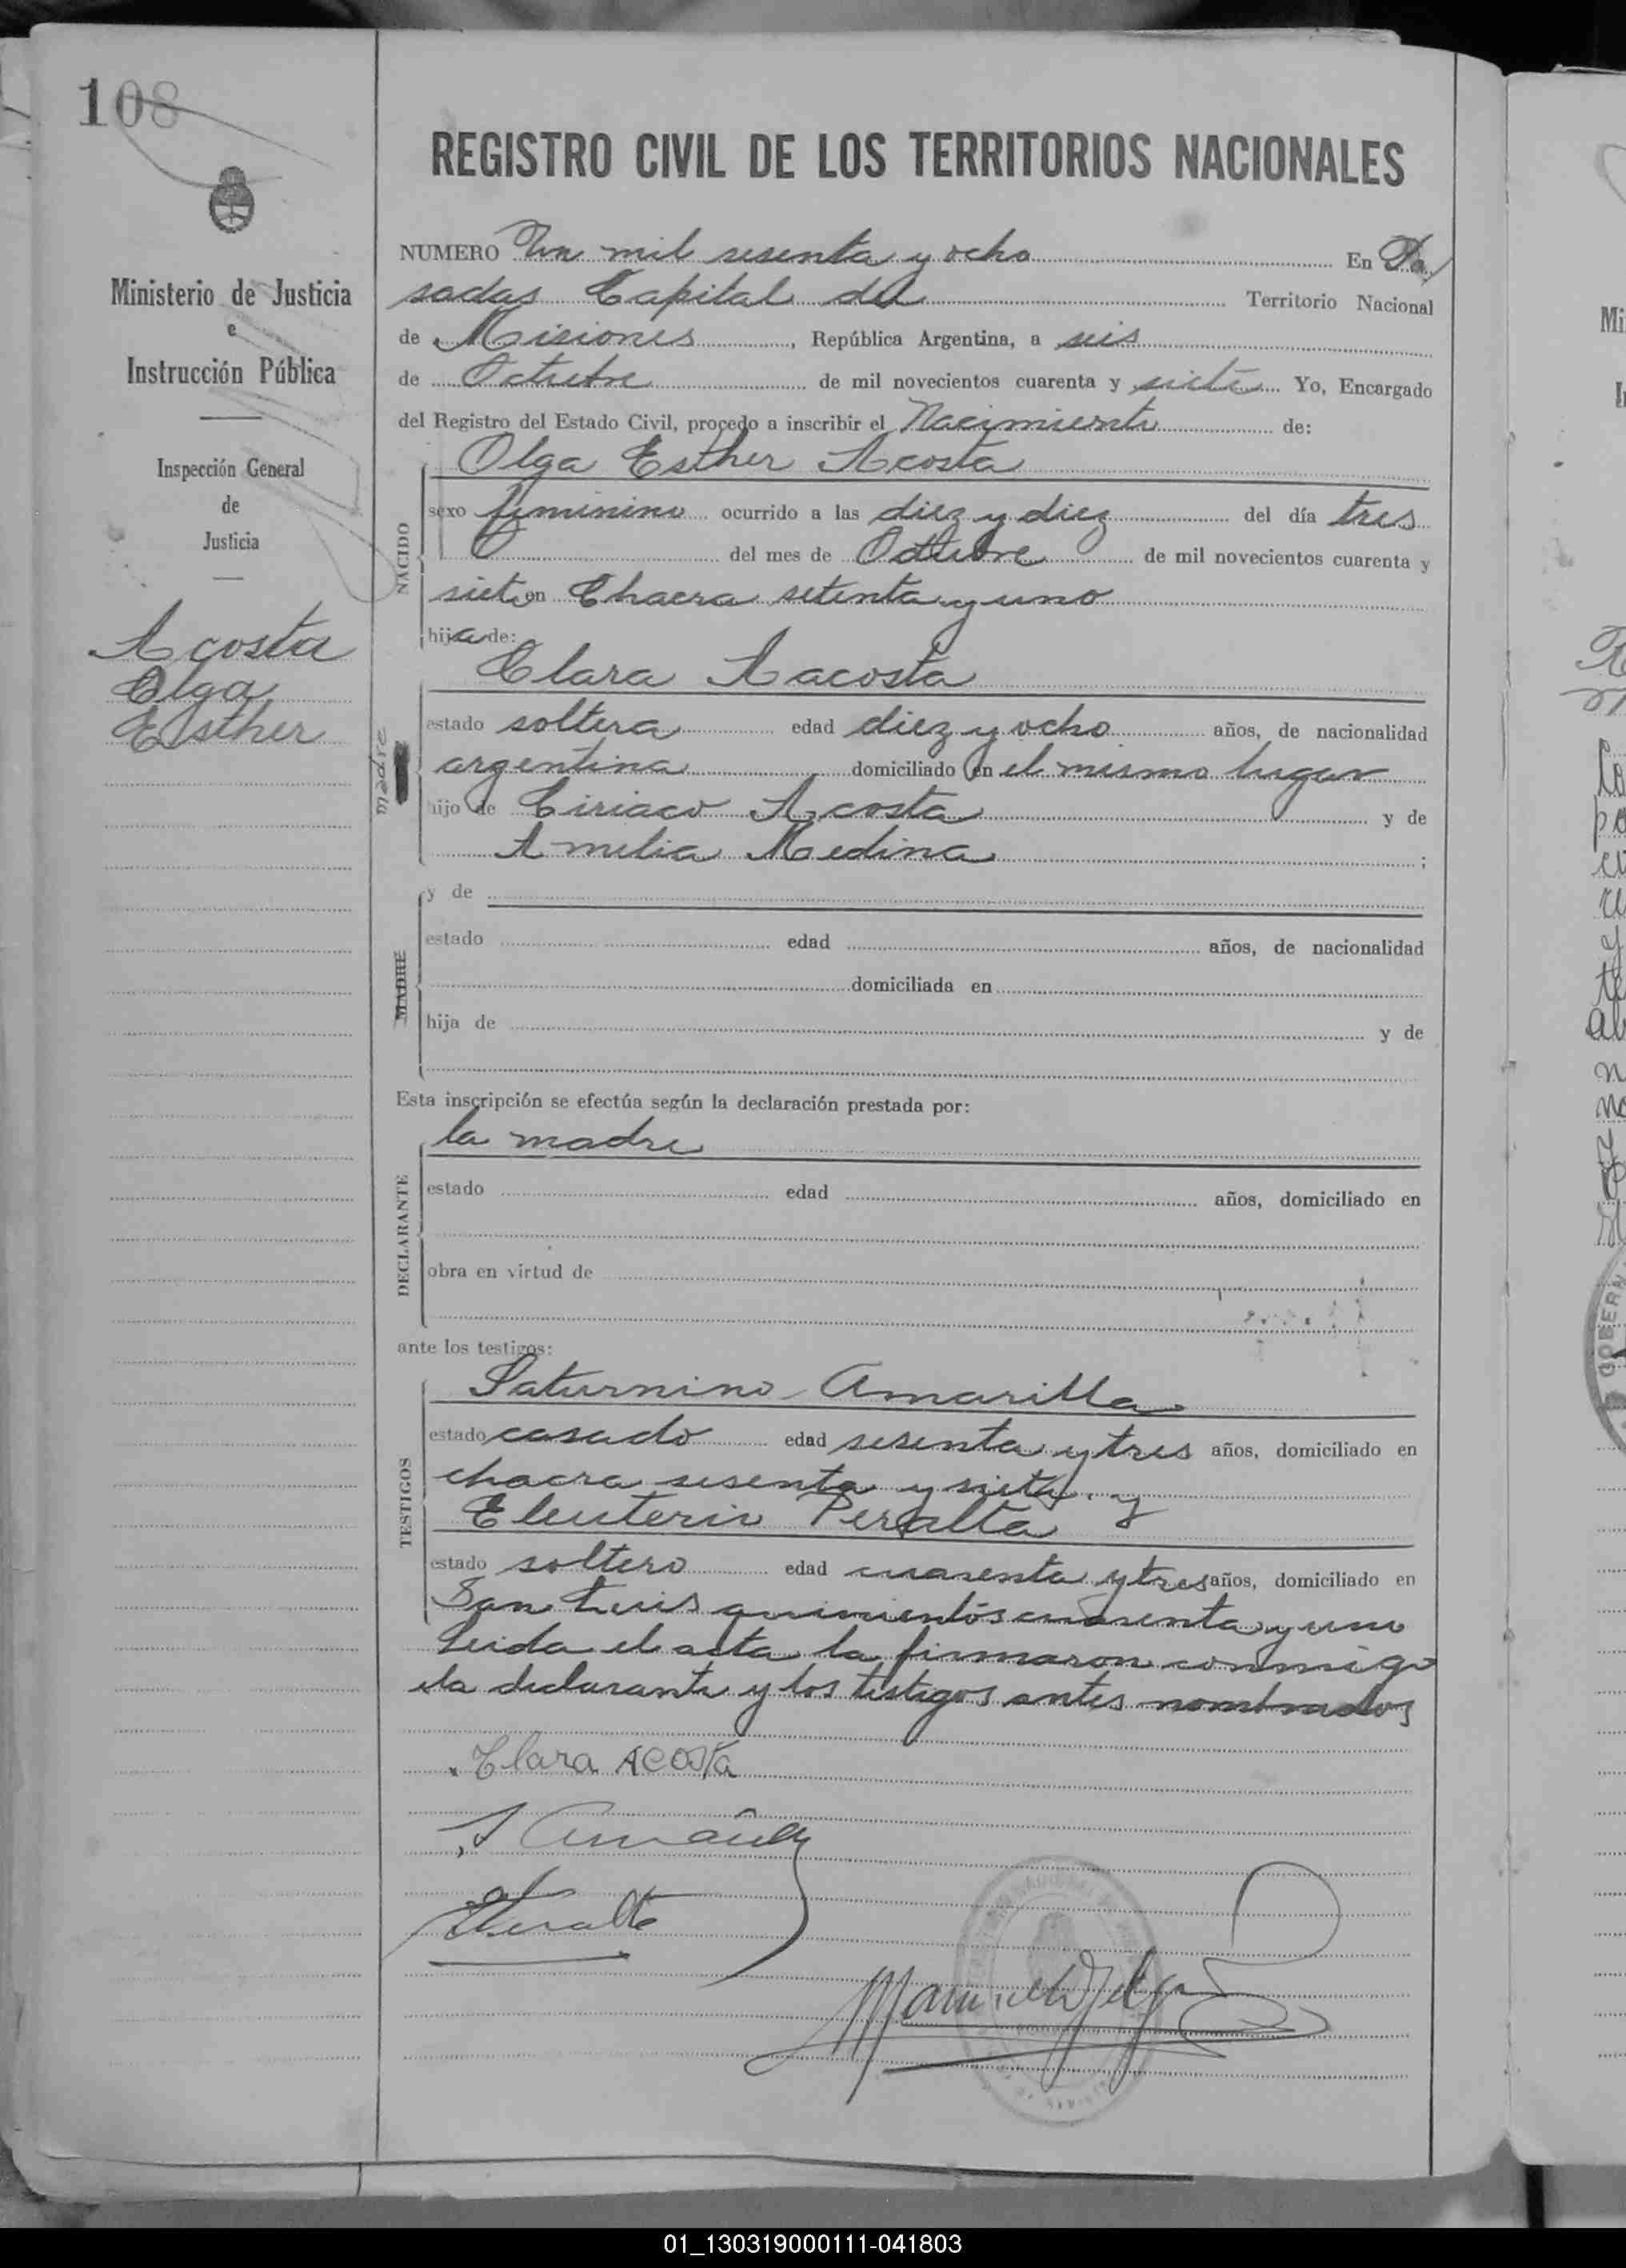 108
REGISTRO CIVIL DE LOS TERRITORIOS NACIONALES
Ministerio de Justicia
e
Instrucción Pública
Inspección General
de
Justicia
Acosta
Olga
Esther
NUMERO Un mil sesenta y ocho En Po/
sadas Capital del Territorio Nacional
de Misiones, República Argentina, a seis
de Octubre de mil novecientos cuarenta y siete Yo, Encargado
del Registro del Estado Civil, procedo a inscribir el Nacimiento de:
NACIDO
Olga Esther Acosta
sexo femenino ocurrido a las diez y diez del día tres
del mes de Octubre de mil novecientos cuarenta y
siete en Chacra setenta y uno
hija de:
madre
Clara Aacosta
estado soltera edad diez y ocho años, de nacionalidad
argentina domiciliado en el mismo lugar
hijo de Ciriaco Acosta y de
Amelia Medina ;
MADRE
y de
estado edad años, de nacionalidad
domiciliada en
hija de y de
Esta inscripción se efectúa según la declaración prestada por:
DECLARANTE
la madre
estado edad años, domiciliado en
obra en virtud de
ante los testigos:
TESTIGOS
Saturnino Amarilla
estado casado edad sesenta y tres años, domiciliado en
chacra sesenta y siete. y
Eleuterio Peralta
estado soltero edad cuarenta y tres años, domiciliado en
San Luis quinientos cuarenta y uno
Leida el acta la firmaron conmigo
la declarante y los testigos antes nombrados
Clara Acosta
01_130319000111-041803